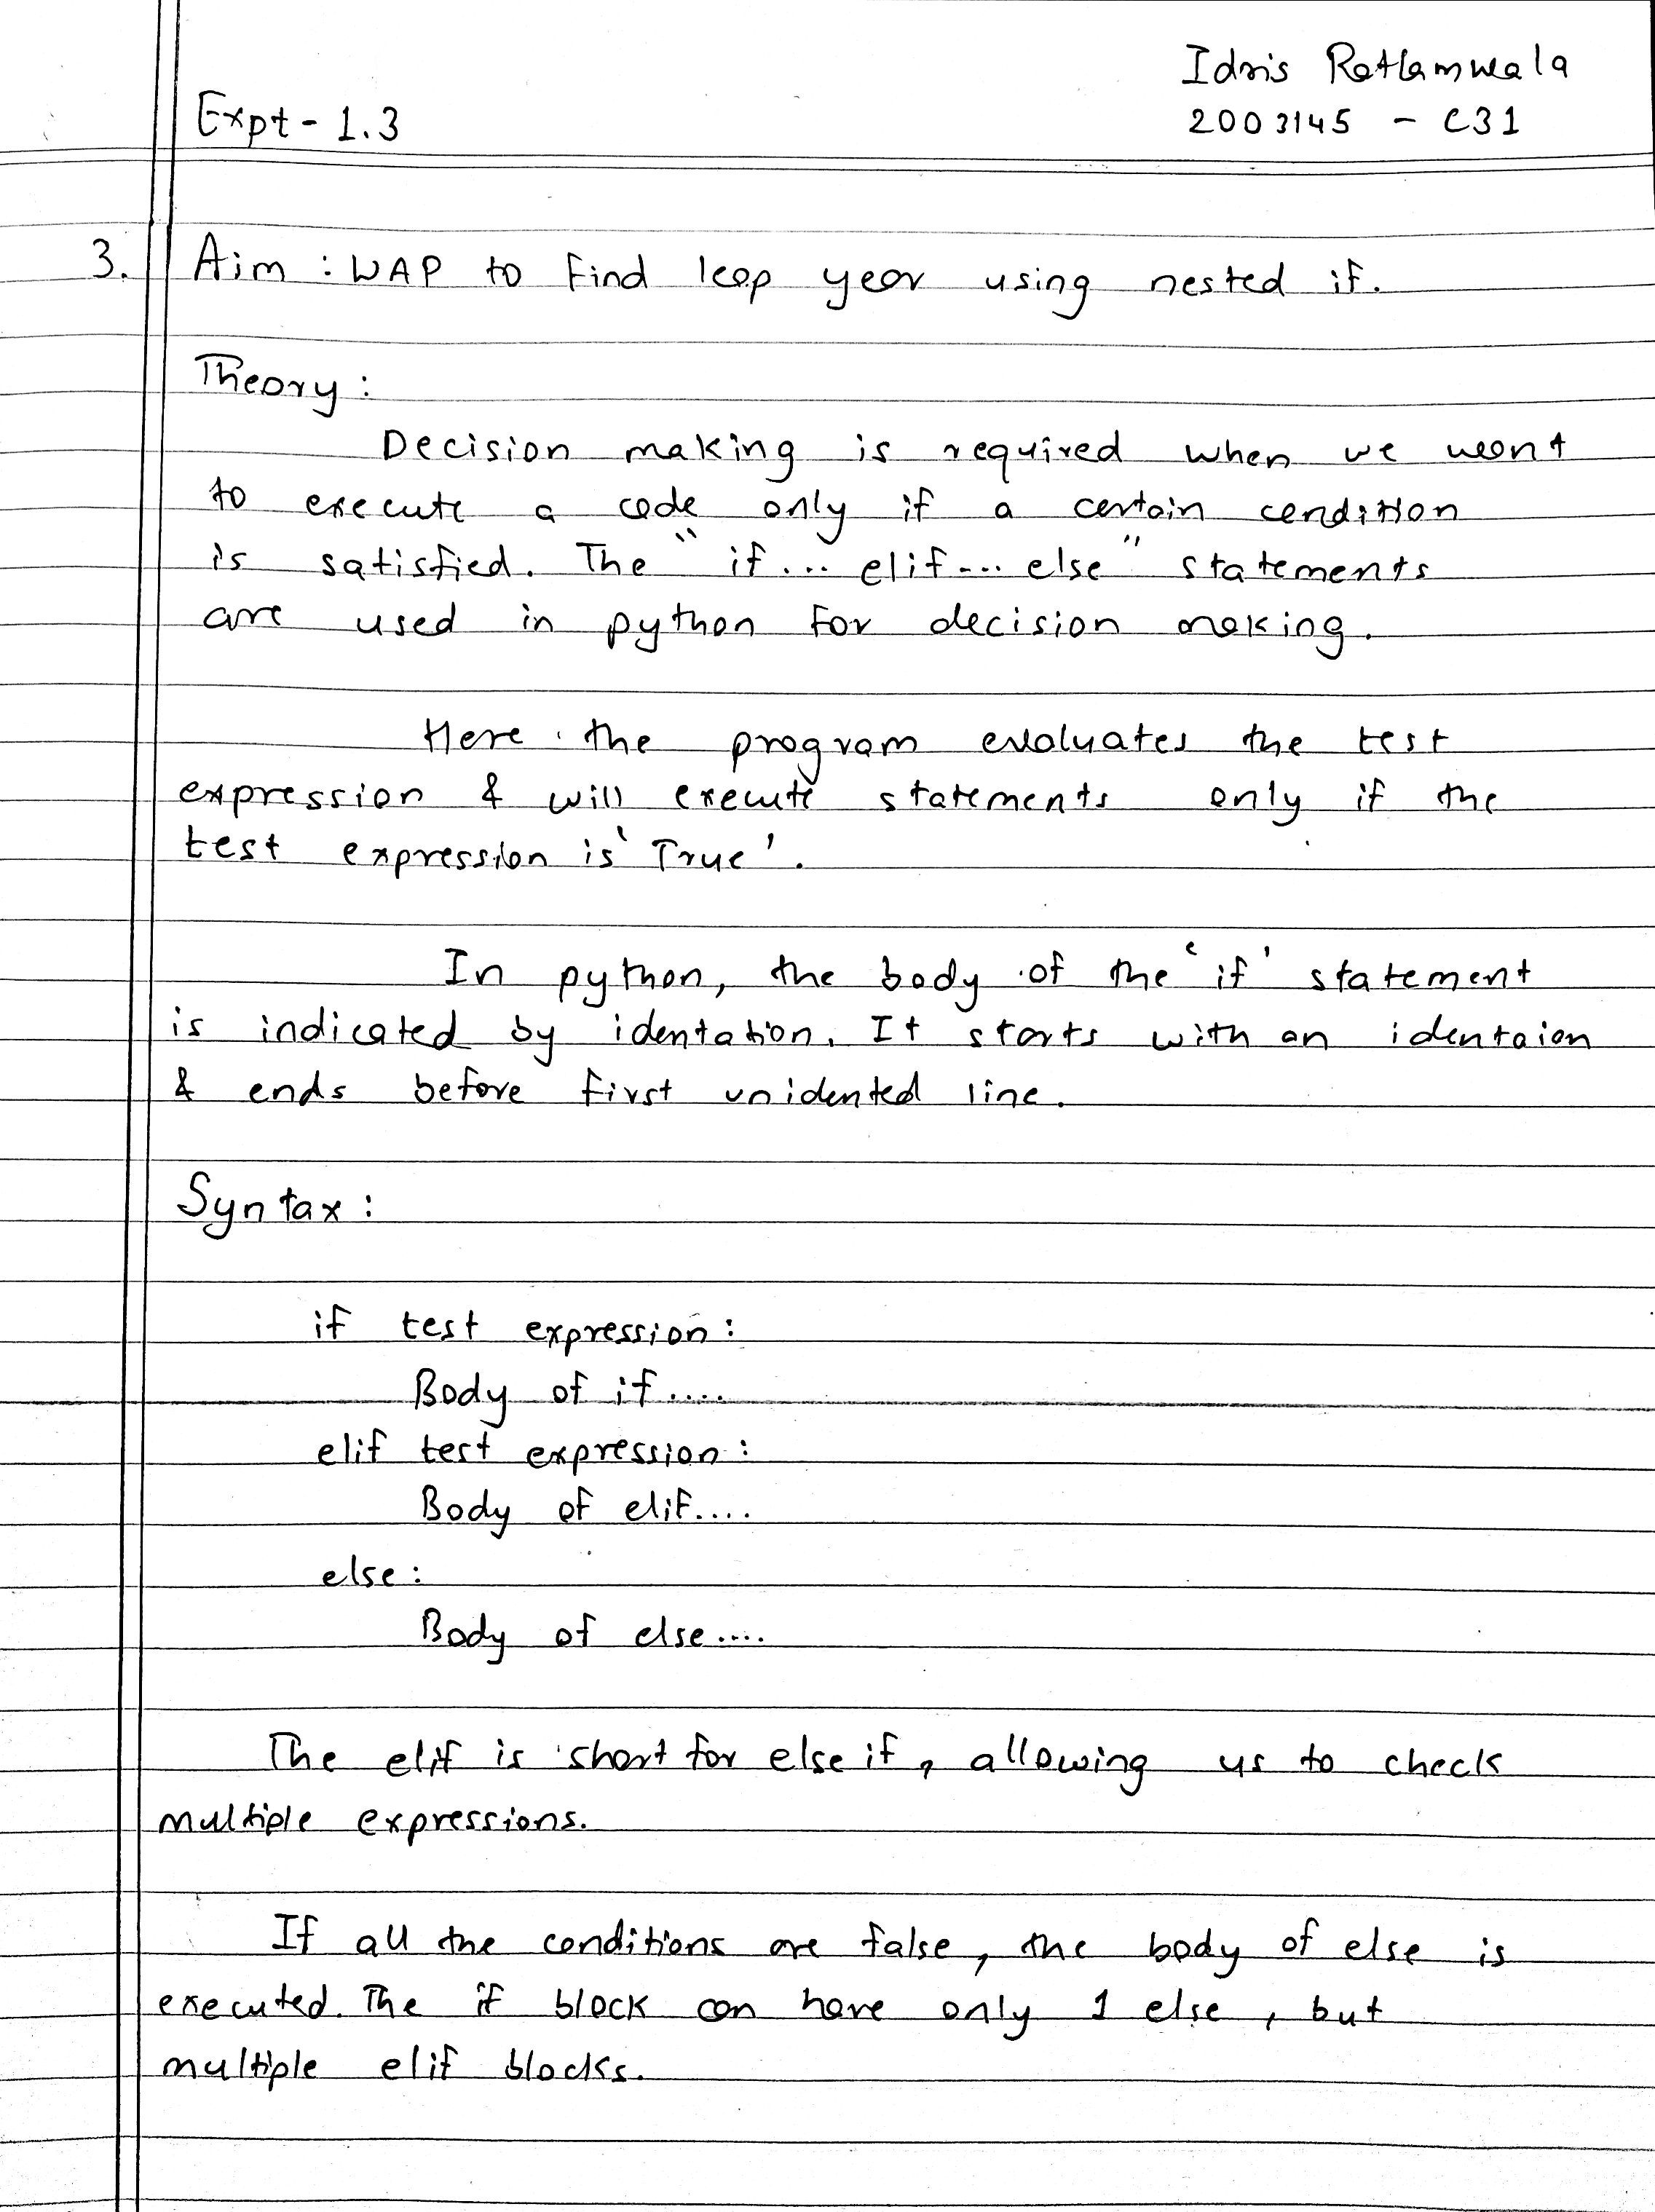 Idris Ratlamwala
Expt - 1.3
2003145 - C31
3. Aim : WAP to find leap year using nested if.
Theory :
Decision making is required when we want
to execute a code only if a certain condition
is satisfied. The "if... elif... else" statements
are used in python for decision making.
Here the program evaluates the test
expression & will execute statements only if the
test expression is 'True'.
In python, the body of the 'if' statement
is indicated by identation. It starts with an identaion
& ends before first unidented line.
Syntax :
if test expression :
Body of if ....
elif test expression :
Body of elif....
else :
Body of else ....
The elif is short for else if, allowing us to check
multiple expressions.
If all the conditions are false, the body of else is
executed. The if block can have only 1 else, but
multiple elif blocks.